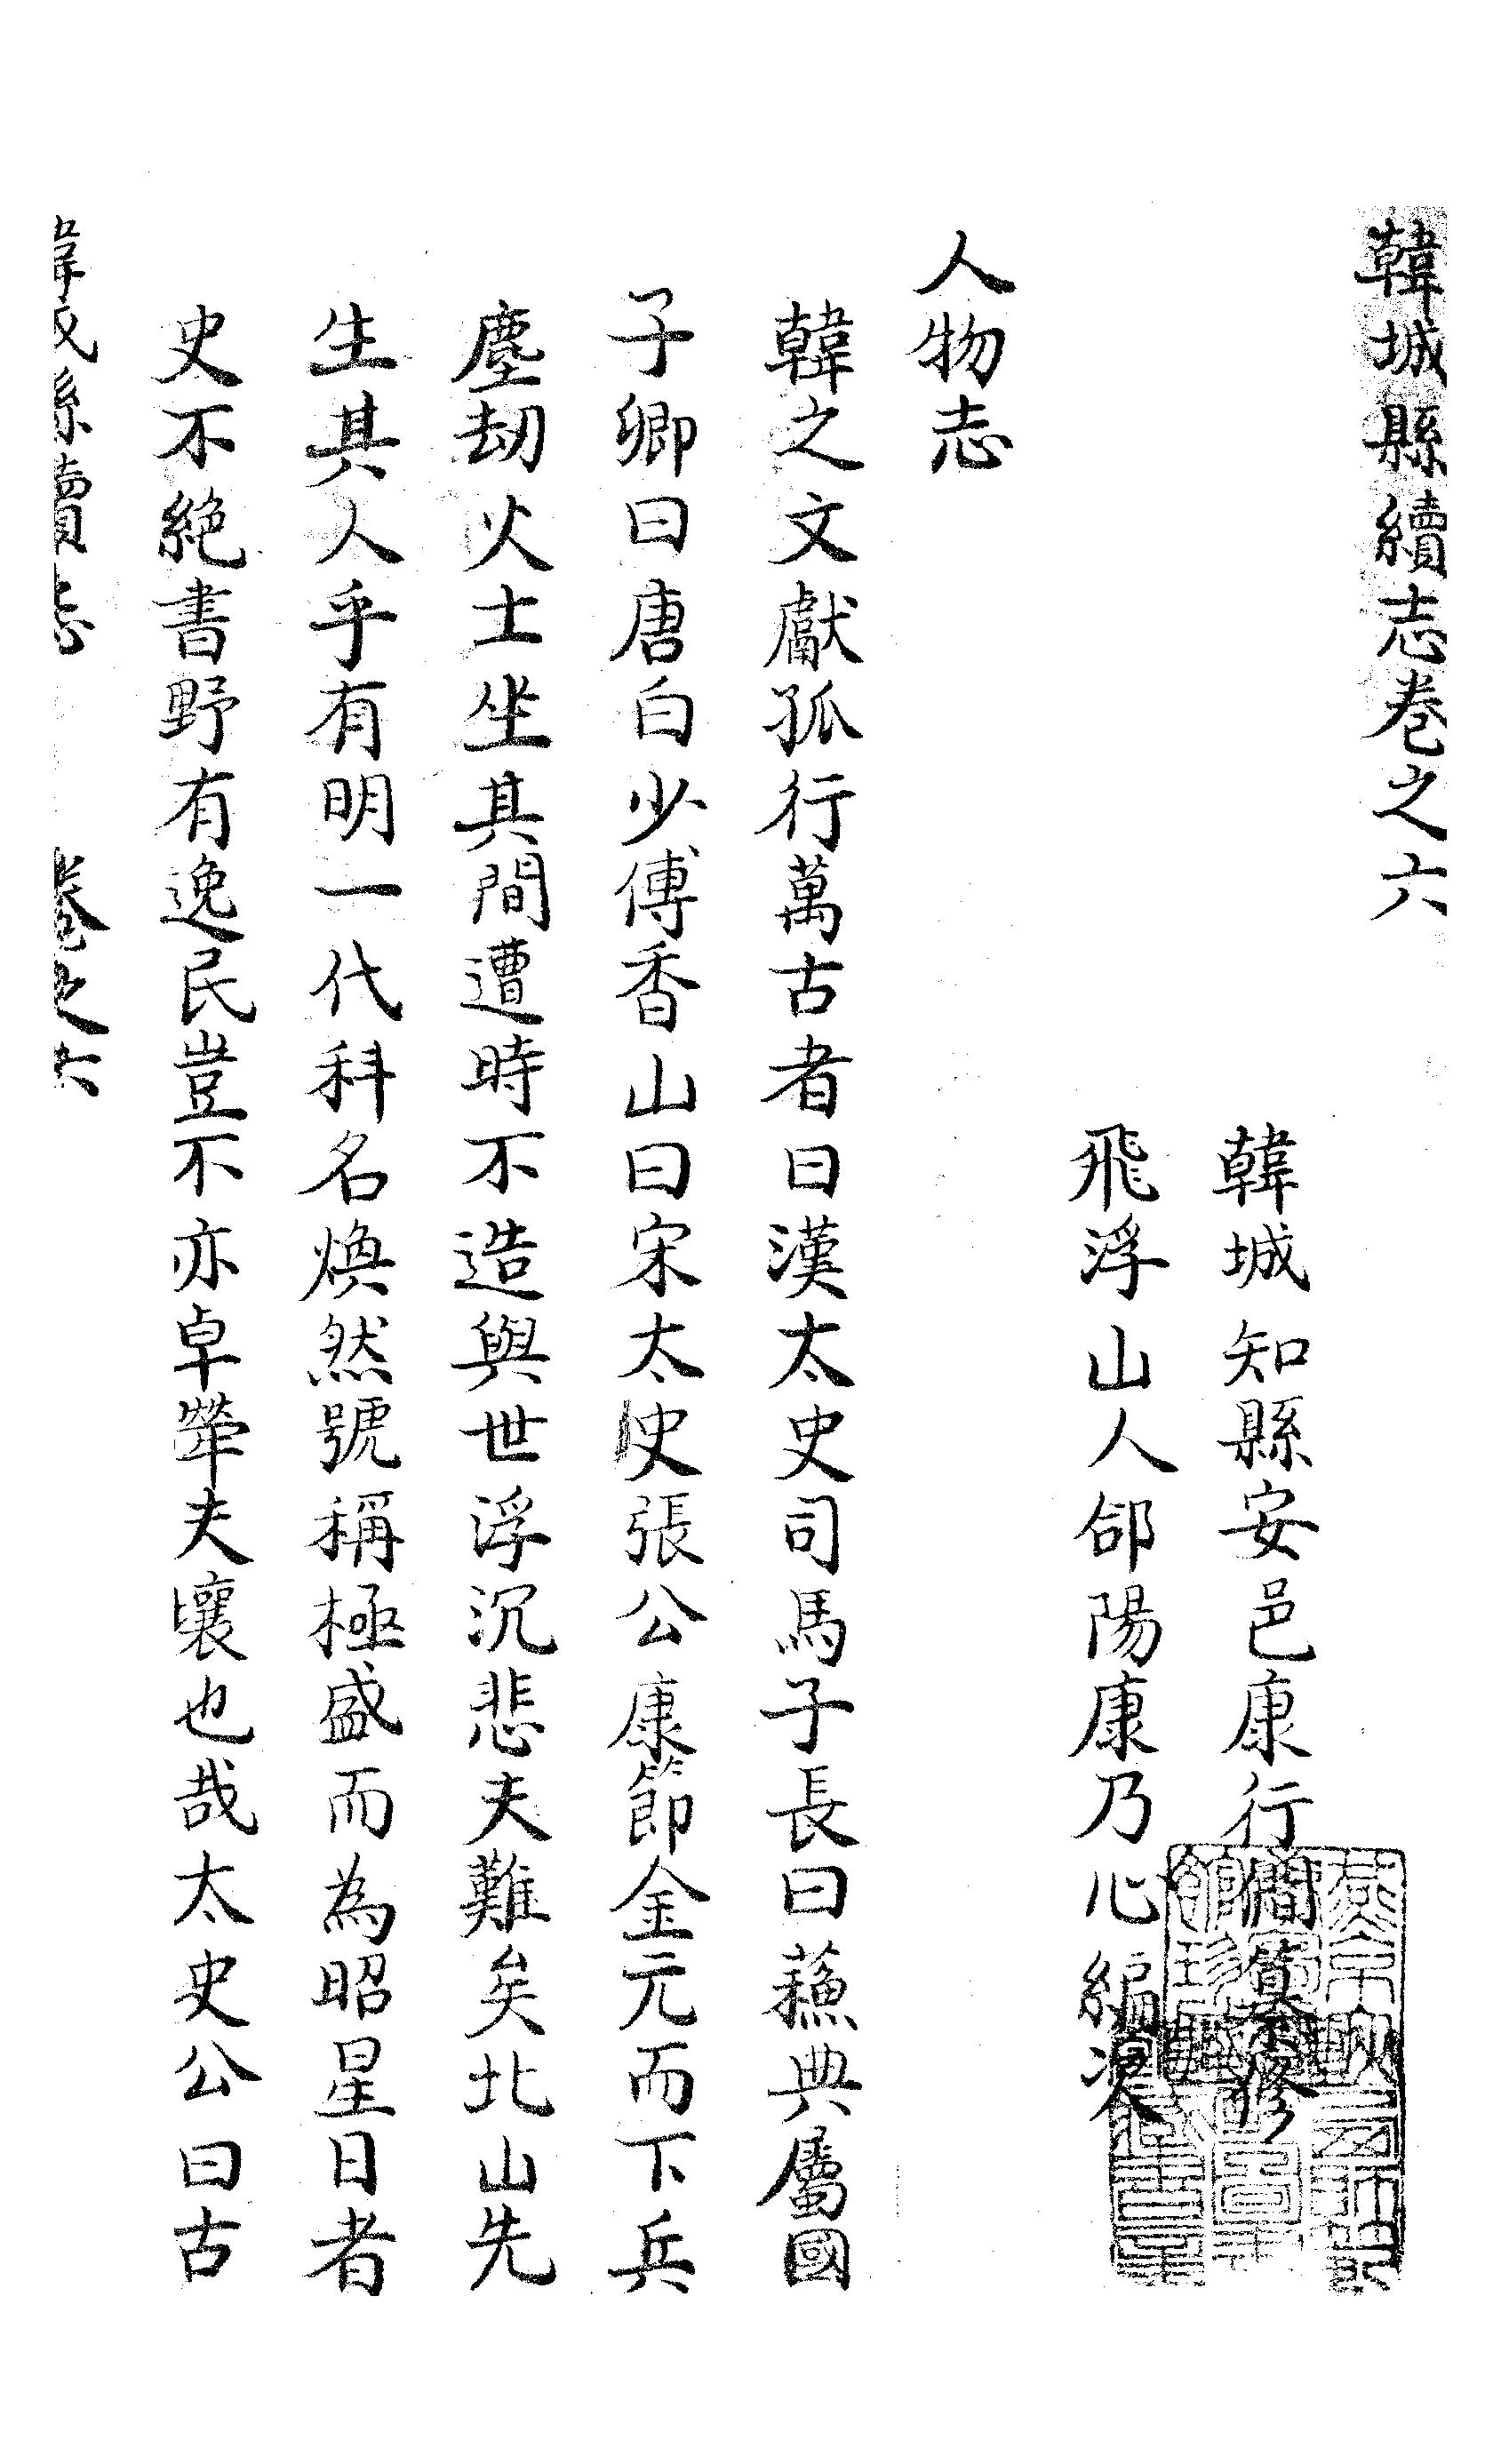 韓城縣續志卷之六
韓城知縣安邑康行僴纂修
飛浮山人郃陽康乃心編次
人物志
韓之文獻孤行萬古者曰漢太史司馬子長曰蘓典屬國
子卿曰唐白少傅香山曰宋太史張公康節金元而下兵
塵刼火士坐其間遭時不造與世浮沉悲夫難矣北山先
生其人乎有明一代科名煥然號稱極盛而為昭星日者
史不絶書野有逸民豈不亦卓犖夫壤也哉太史公曰古
韓城縣續志 卷之六